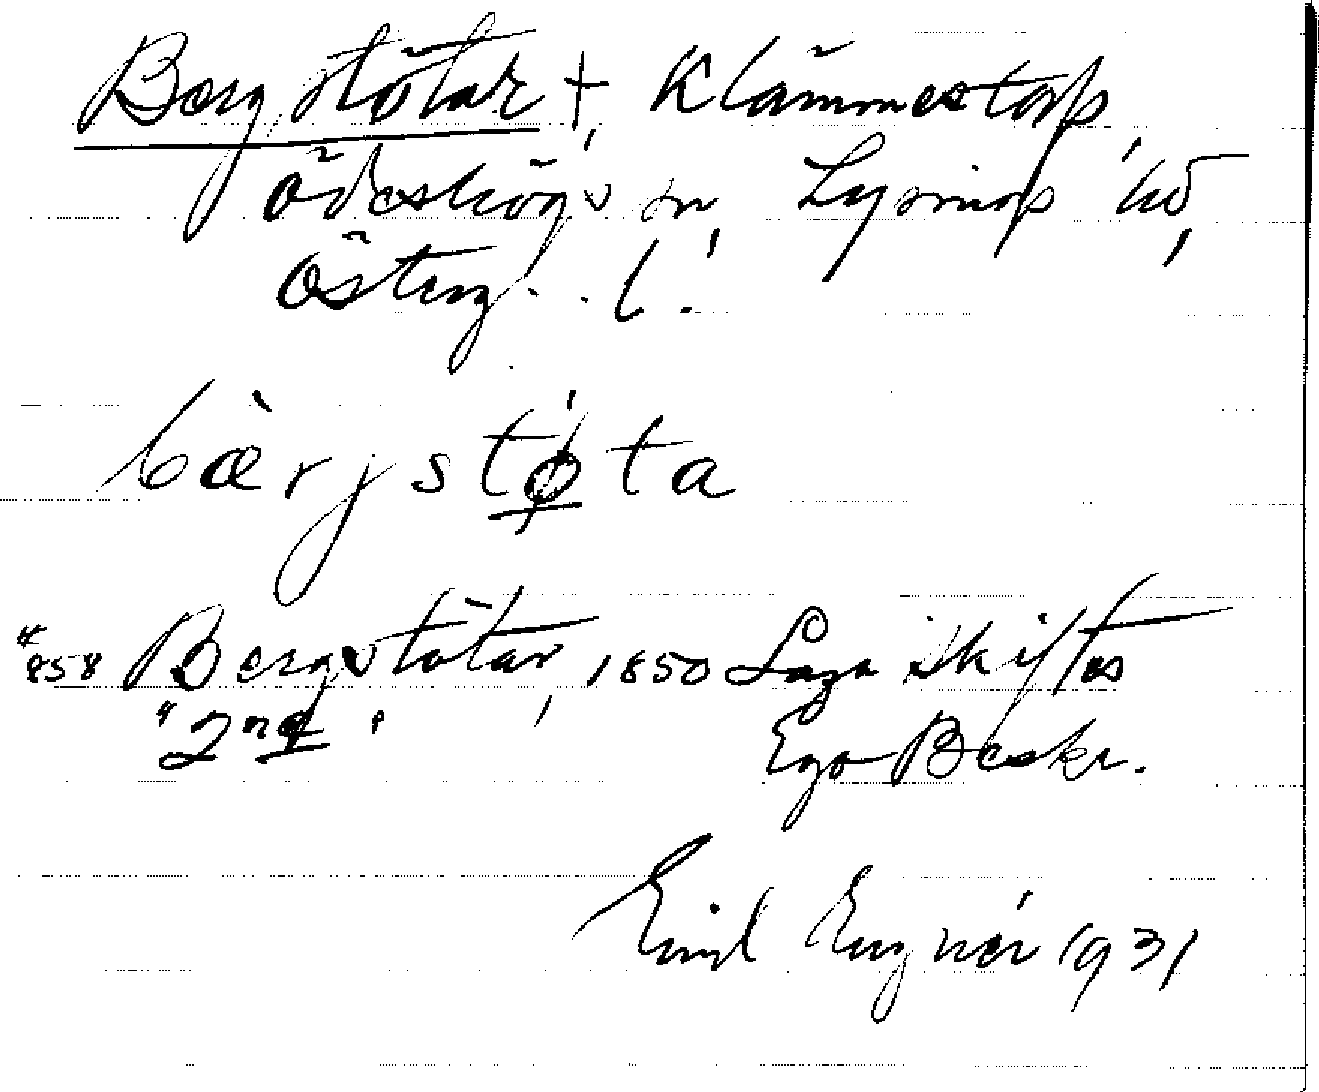 Bergstötar †, Klämmestorp,
Ödeshögs sn, Lysings hd,
Österg. l.
bæ̀rjstǿ̱ta
"858 Bergstötar, 1850 Laga Skiftes
"2na. Ego Beskr.
Emil Engnér 1931